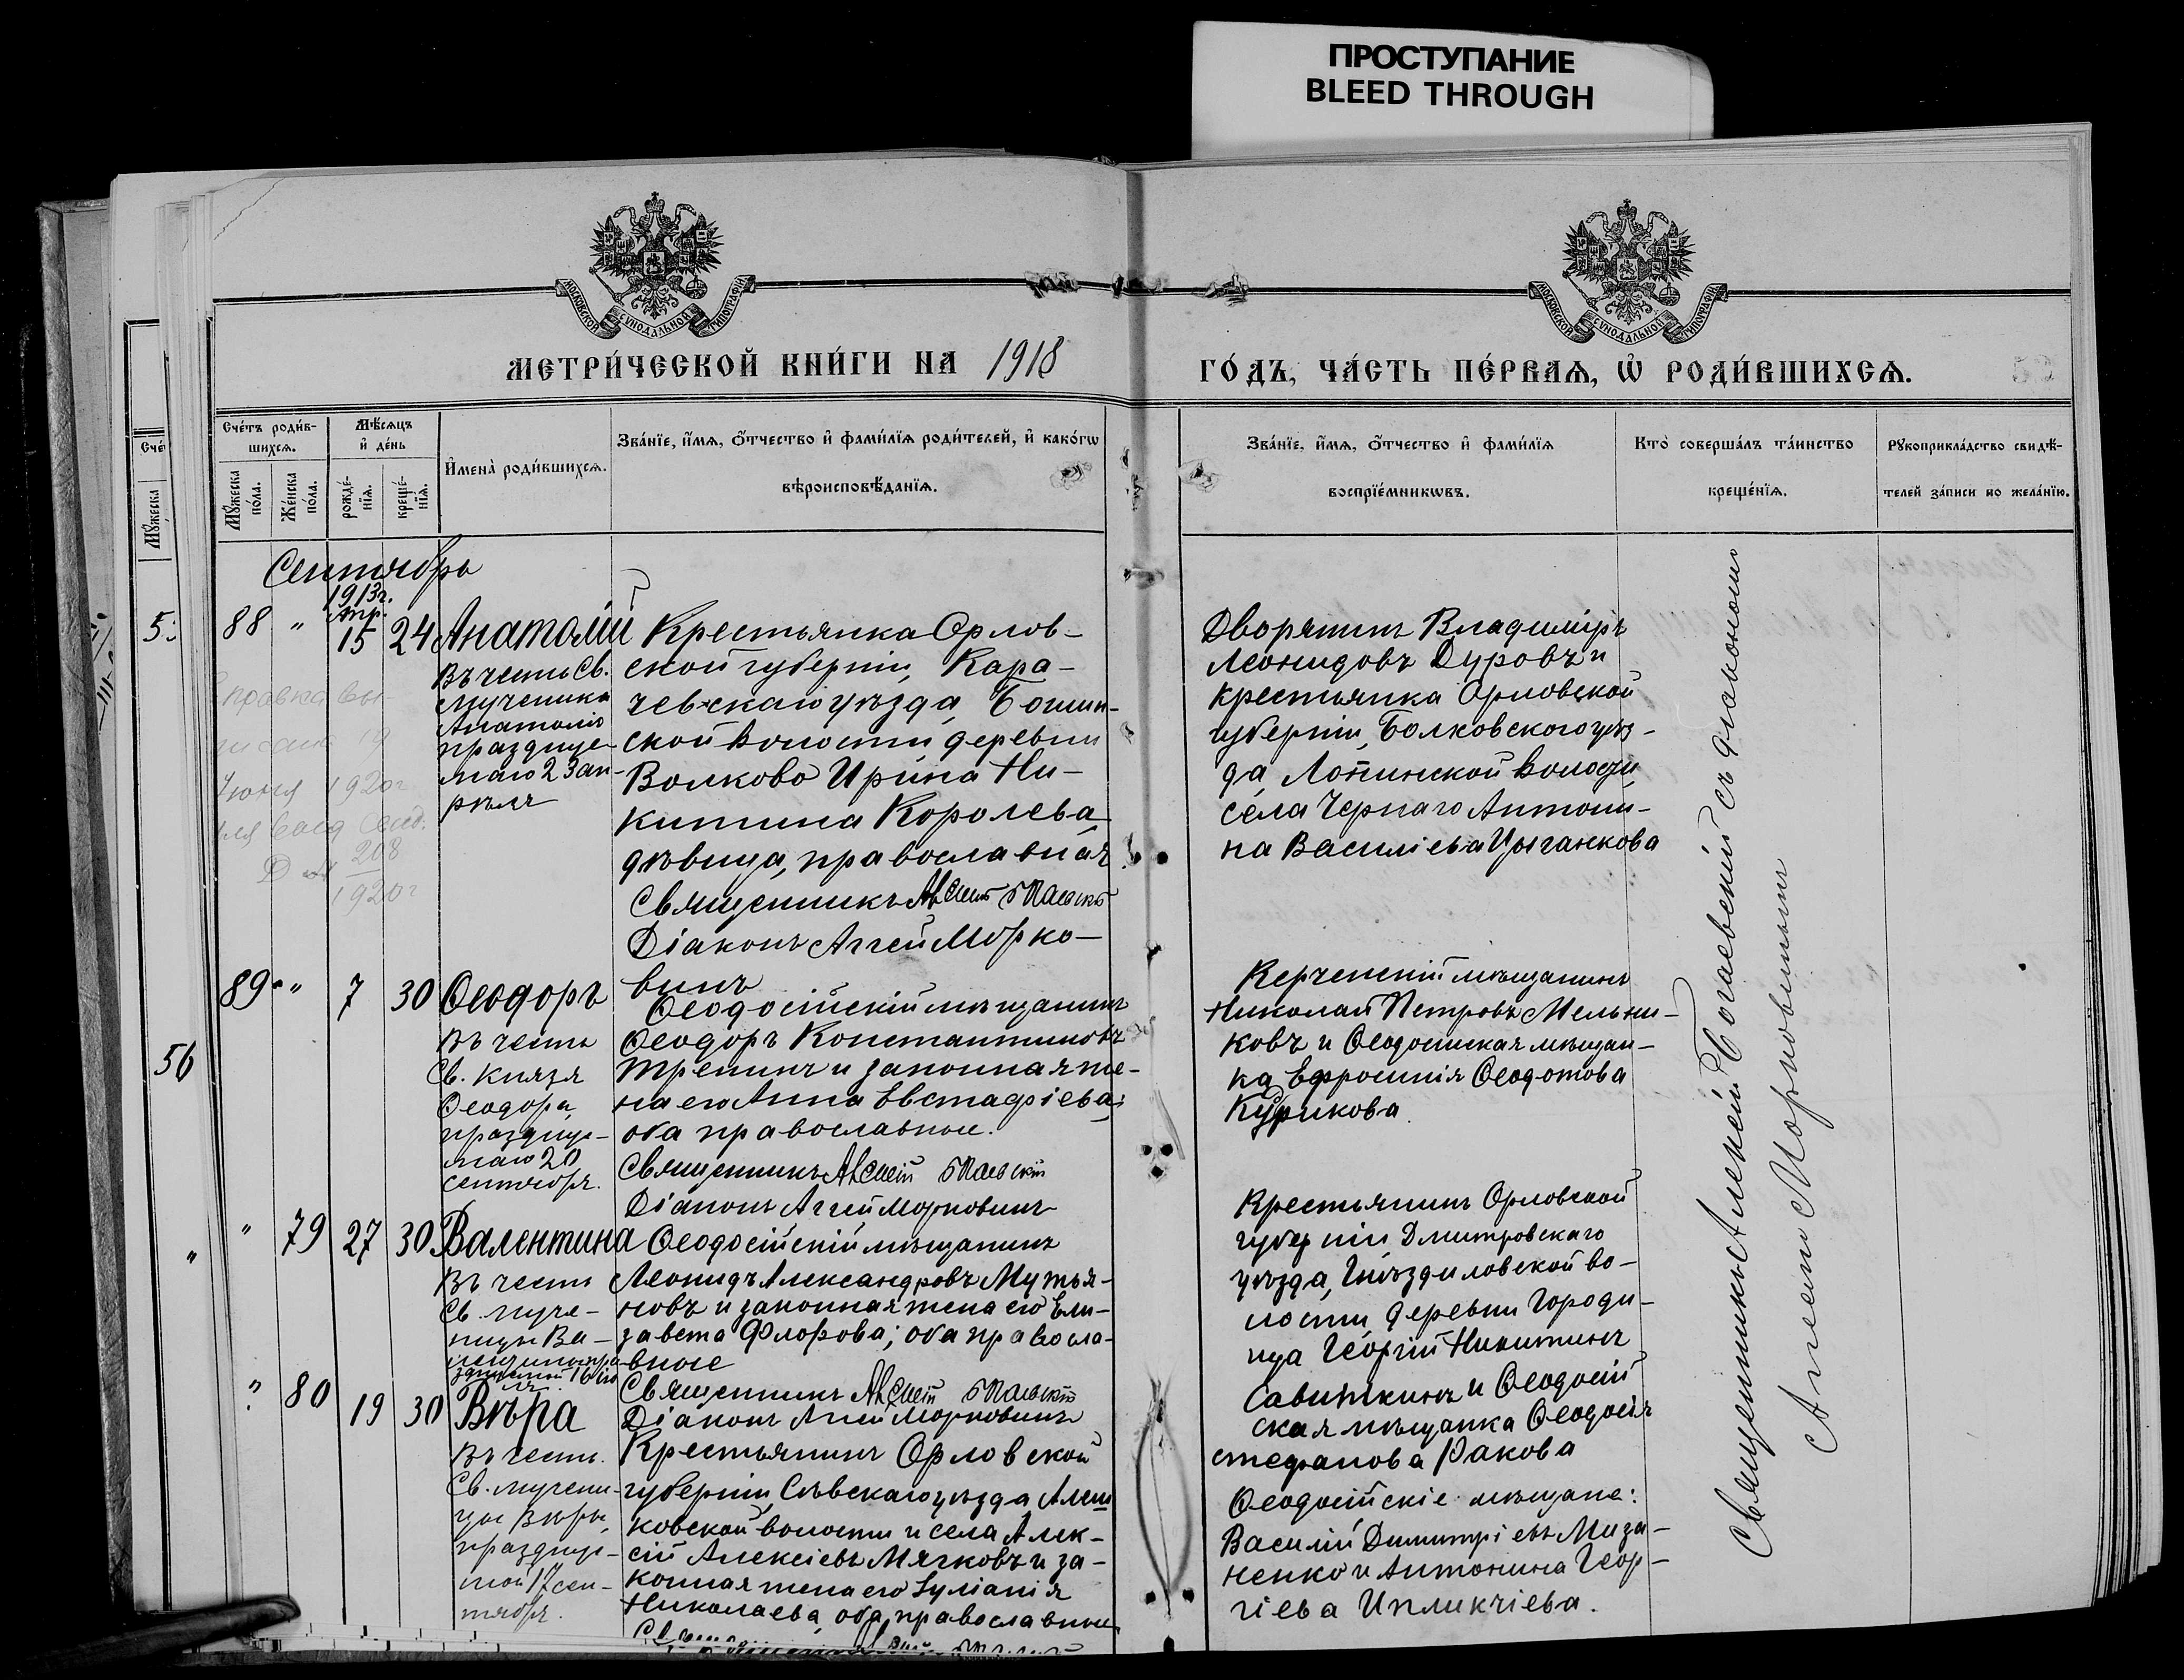 ПРОСТУПАНИЕ
BLEED THROUGH
МОСКОВСКОЙ СѴНОДАЛЬНОЙ ТИПОГРАФІИ
МОСКОВСКОЙ СѴНОДАЛЬНОЙ ТИПОГРАФІИ
МЕТРИ́ЧЕСКОЙ КНИ́ГИ НА 1918
ГО́ДЪ, ЧА́СТЬ ПЕ́РВАЯ, Ѡ҆ РОДИ́ВШИХСЯ.
Счéтъ роди́в-
шихся.
Мꙋ́жеска
по́ла.
Же́нска
по́ла.
Мѣ́сяцъ
и҆ де́нь
рожде́-
нїя.
креще́-
нїѧ.
И҆мена̀ роди́вшихся.
Зва́нїе, и҆́мя, ѻ҆́тчество и҆ фами́лїя роди́телей, и҆ како́гѡ
вѣроисповѣ́данїя.
Зва́нїе, и҆́мя, ѻ҆́тчество и҆ фами́лїя
воспрїе́мникѡвъ.
Кто̀ соверша́лъ та́инство
креще́нїя.
Рꙋкоприкла́дство свидѣ́-
телей за́писи по жела́нїю.
Сче
Мꙋ́жеска
56
Сентябрь
88 " 1913г. Апр. 15 24 Анатолій
Въ честь Св.
мученика
Анатолія
празднуе-
маго 23 ап-
рѣля
Крестьянка Орлов-
ской губерніи, Кара-
чевскаго уѣзда,
ской волости деревни
Волково Ирина Ни-
китина Королева
дѣвица, православная
Священникъ
Діаконъ Аггей Морко-
винъ
Дворянинъ Владиміръ
Леонидовъ Дуровъ и
крестьянка Орловской
губерніи, Болховского уѣз-
да, волости
села Чернаго Антони-
на Васильева Цыганкова
Справка вы-
писана 19
Июня 1920г
208
1920г
89 " 7 30 Ѳеодоръ
Въ честь
Св. Князя
Ѳеодора,
праздну-
емаго 20
сентября.
Ѳеодосійскій мѣщанинъ
Ѳеодоръ Константиновъ
Трепинъ и законная же-
на его Анна Евстафіева;
оба православные.
Священникъ
Діаконъ Аггей Морковинъ
Керченскій мѣщанинъ
Николай Петровъ Мельни-
ковъ и Ѳеодосійская мѣщан-
ка Ефросинія Ѳеодотова
Курикова.
" 79 27 30 Валентина
Въ честь
Св. муче-
ницы Ва-
Ѳеодосійскій мѣщанинъ
Леонидъ Александровъ Мутья-
новъ и законная жена его Ели-
завета Флорова; оба правосла-
вные
Священникъ
Діаконъ Аггей Морковинъ
Крестьянинъ Орловской
губерніи Дмитровскаго
уѣзда, Гнѣздиловской во-
лости, деревни Городи-
ща Георгій Никитинъ
Савиткинъ и Ѳеодосій
ская мѣщанка Ѳеодосія
Стефанова Ракова
" 80 19 30 Вѣра
Въ честь
Св. мучени-
цы Вѣры,
праздну-
мой 17 сен-
тября.
Крестьянинъ Орловской
губерніи, Сѣвскаго уѣзда
ковской волости и села Алек-
сій Алексіевъ Мячковъ и за-
конная жена его Іуліанія
Николаева, оба православные
Ѳеодосійскіе мѣщане:
Василій Димитріевъ Миза-
ненко и Антонина Геор-
гіева Ипликчіева.
Священникъ Алексей съ діакономъ
Аггеемъ Морковинымъ